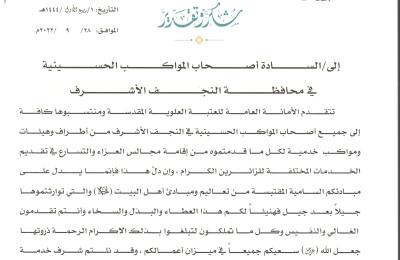 التاريخ: ١/ربيع الأول/١٤٤٤هـ
شكر وتقدير
الموافق: ٢٨ / ٩ / ٢٠٢٢م
إلى/السادة أصحاب المواكب الحسينية
في محافظة النجف الأشرف
تتقدم الأمانة العامة للعتبة العلوية المقدسة ومنتسبوها كافة
إلى جميع أصحاب المواكب الحسينية في النجف الأشرف من أطراف وهيئات
ومواكب خدمية لكل ما قدمتموه من إقامة مجالس العزاء والتسارع في تقديم
الخدمات المختلفة للزائرين الكرام، وإن دلّ هذا فإنما يدل على
مبادئكم السامية المقتبسة من تعاليم ومبادئ أهل البيت (عليهم السلام) والتي توارثتموها
جيلاً بعد جيل فهنيئاً لكم هذا العطاء والبذل والسخاء وأنتم تقدمون
الغالي والنفيس وكل ما تملكون لتبلغوا بذلك الاكرام الرحمة ذروتها
جعل الله () سعيكم جميعاً في ميزان أعمالكم، وقد نلتم شرف خدمة